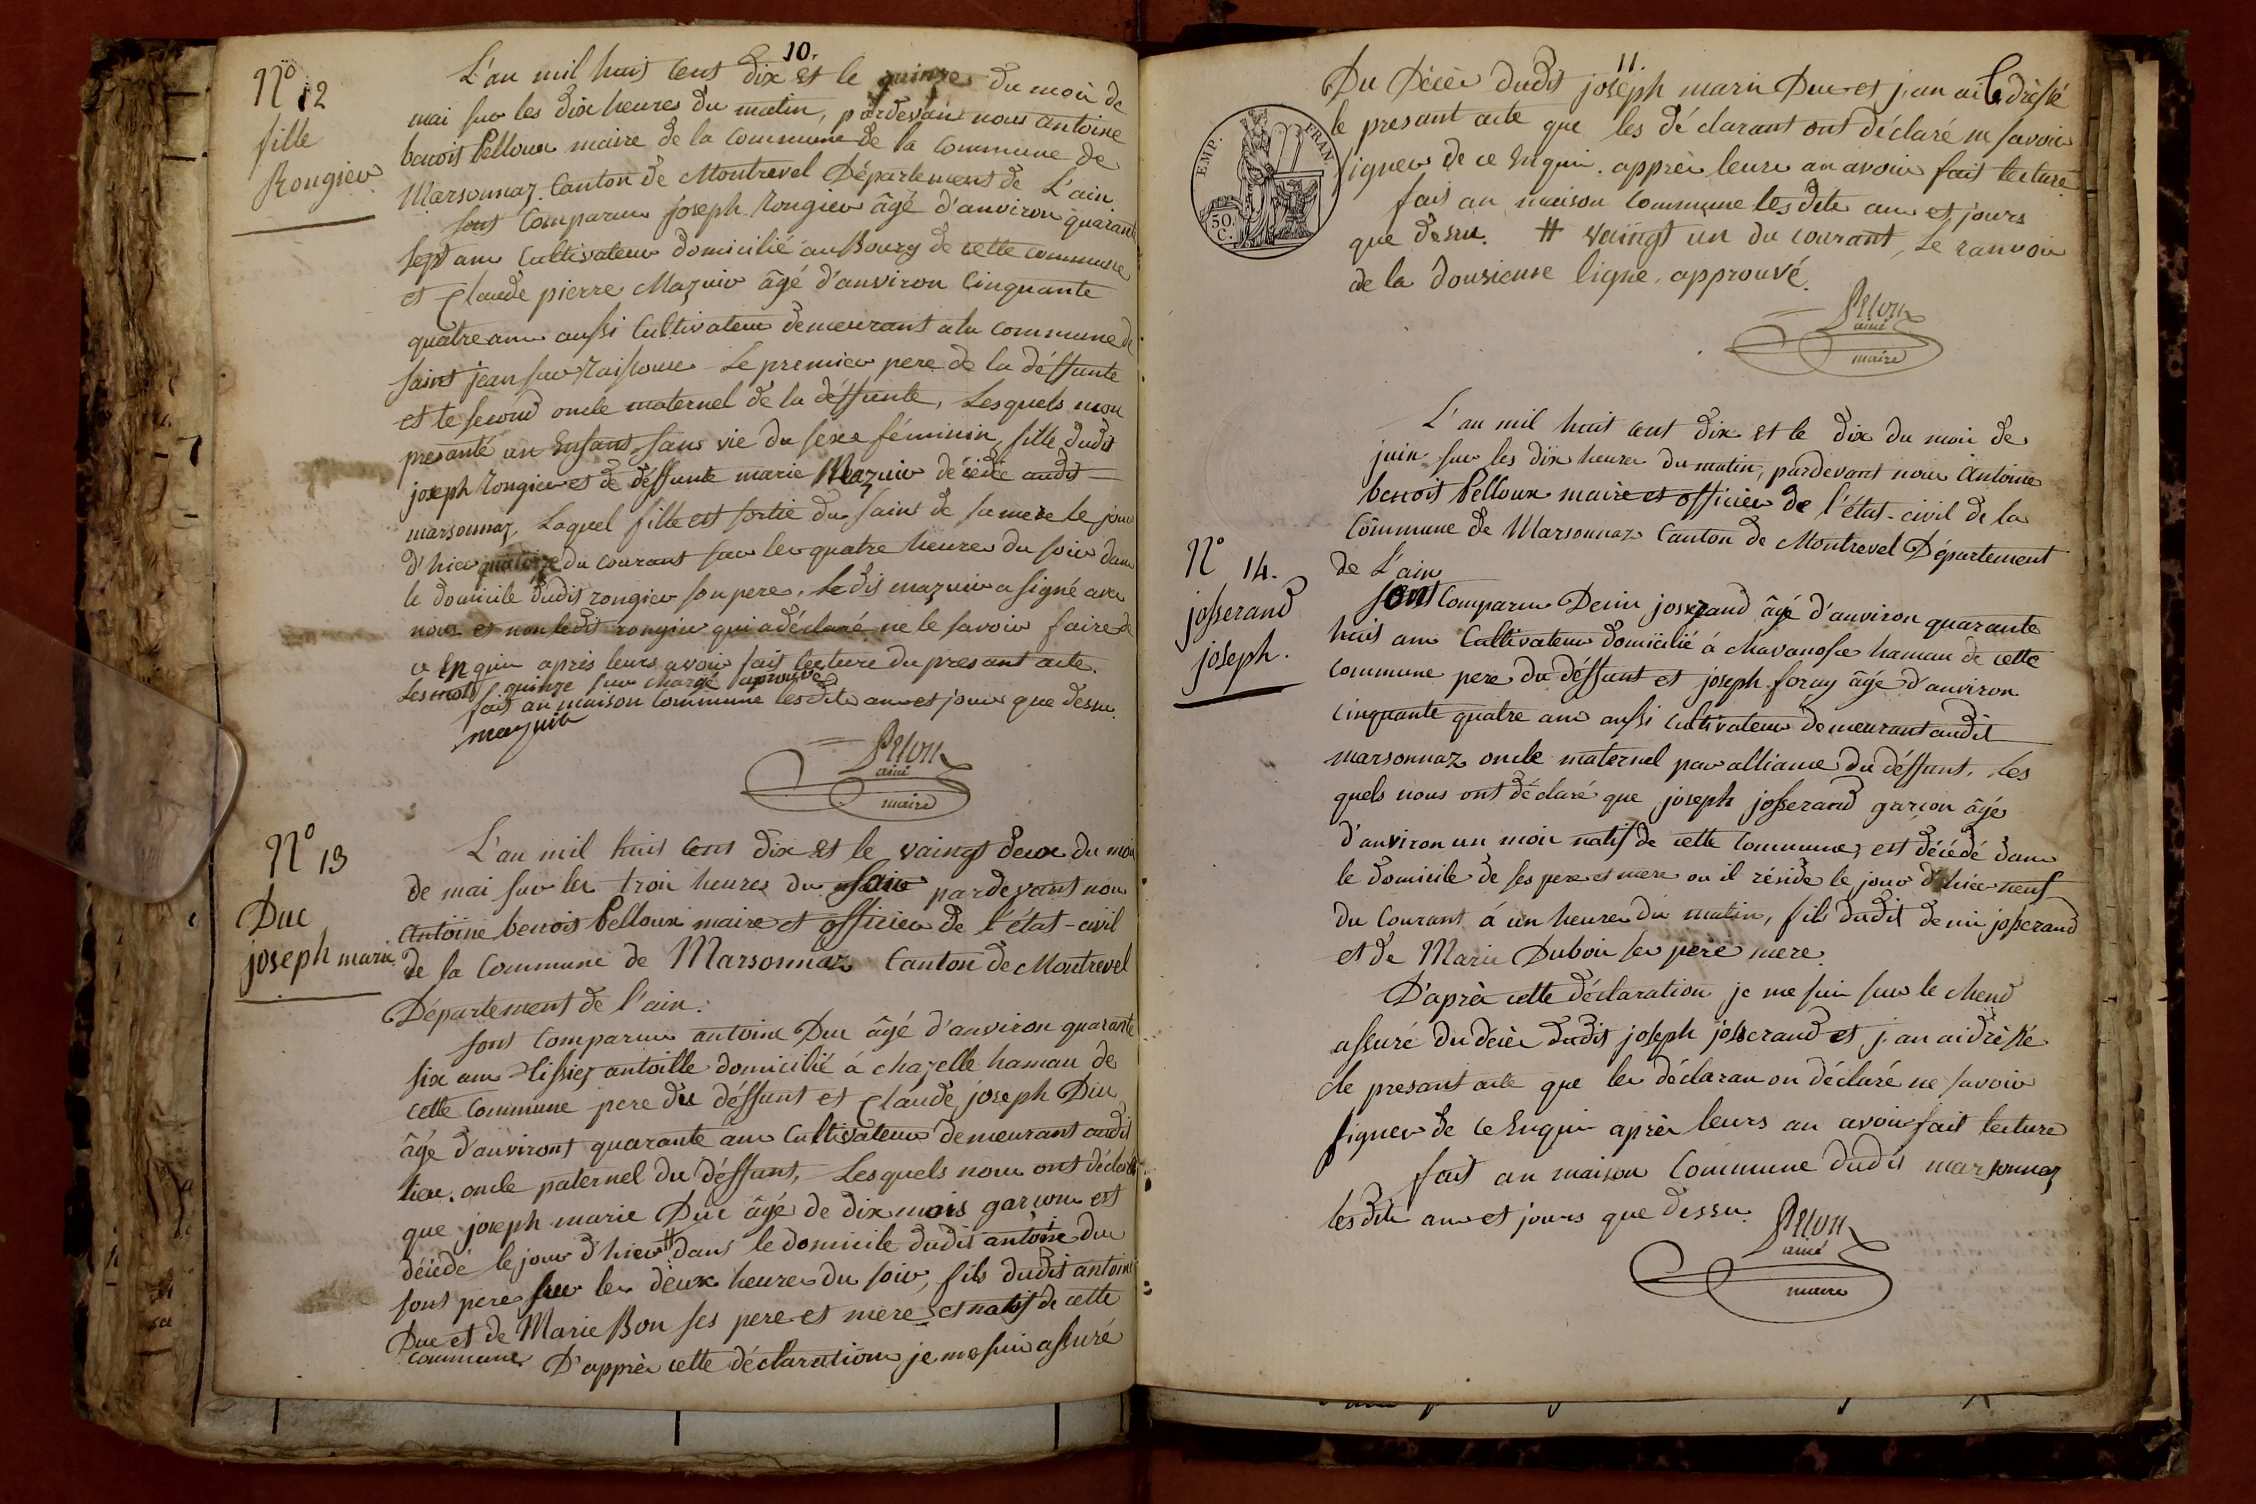 10.
N° 12
fille
Rongier
L'an mil huit cent dix et le quinze du moi de
mai sur les dix heures du matin, pardevan nous antoine
benoit Pelloux maire de la commune de la commune de
Marsonnaz Canton de Montrevel Département de L'ain
sont comparu joseph rongier âgé d'anviron quarant
sept ans Cultivateur domicilié au Bourg de cette commune
et Claude pierre Mazuir âgé d'anviron Cinquante
quatre ans aussi Cultivateur demeurant a la commune de
saint jean sur Raissouse Le premier pere de la déffunte
et le second oncle maternel de la déffunte, Lesquels mon
presanté un Enfant sans vie du sexe féminin, fille dudit
joseph rongier et de déffunte marie Mazuir décédé audit
marsonnaz, Laquel fille est sortie du sain de sa mere le jour
d'hier quatorze du courant sur les quatre heures du soir dans
le domicile dudit rongier son pere, Le dit mazuir a signé avec
nous et non ledit rongier qui a déclaré ne le savoir faire de
ce Enquis après leurs avoir fait lecture du presant acte.
Les mots quinze sur chargé aprouvé
fait an maison commune lesdits ans et jour que dessu.
mazuir
Pelloux
ainé
maire
N° 13
Duc
joseph marie
L'an mil huit cent dix et le vaingt deux du moi
de mai sur les troi heures du soir pardevant nou
antoine benoit Pelloux maire et officier de l'état-civil
de la Commune de Marsonnaz Canton de Montrevel
Département de l'ain.
sont comparu antoine Duc âgé d'anviron quarante
six ans Tissier antoille domicilié á chazelle hamau de
cette Commune pere du déffunt et Claude joseph Duc
âgé d'anviront quarante ans Cultivateur demeurant audit
lieu. oncle paternel du déffunt, Lesquels nous ont déclaré
que joseph marie Duc âgé de dix mois garçon est
décédé le jour d'hier # dans le domicile dudit antoine duc
sont pere sur les deux heures du soir, fils dudit antoine
Duc et de Marie Bon ses pere et mere et natif de cette
commune D'apprès cette déclaration je me suis assuré
11.
EMP. FRAN.
50 C.
Du Décès dudit joseph marie Duc et j'an ai dressé
le presant acte que les déclarant ont déclaré ne savoir
signer de ce Enquis. apprès leurs an avoir fait lecture
fait an maison commune lesdits ans et jours
que dessu. # vaingt un du courant, Le ranvoi
de la dousieme ligne, approuvé.
Pelloux
ainé
maire
N° 14.
josserand
joseph.
L'an mil huit cent dix et le dix du moi de
juin sur les dix heures du matin, pardevant nous Antoine
benoit Pelloux maire et officier de l'état-civil de la
Commune de Marsonnaz Canton de Montrevel Département
de L'ain
sont Comparu Deni josserand âgé d'anviron quarante
huit ans Cultivateur domicilié á chavanosse hamau de cette
commune pere du déffunt et joseph foray âgé d'anviron
cinquante quatre ans aussi cultivateur demeurant audit
marsonnaz oncle maternel par alliance du déffunt. Les
quels nous ont déclaré que joseph josserand garçon âgé
d'anviron un moi natif de cette commune, est décédé dans
le domicile de ses pere et mere ou il réside le jour d'hier neuf
du Courant á un heure du matin, fils dudit deni josserand
et de Marie Duboi ses pere mere.
D'aprè cette déclaration je me suis sur le chend
assuré du décès dudit joseph josserand et j'an ai dressé
le presant acte que les déclaran on déclaré ne savoir
signer de ce Enquis après leurs an avoir fait lecture
fait an maison Commune dudit marsonnaz
lesdits ans et jours que dessu.
Pelloux
ainé
maire